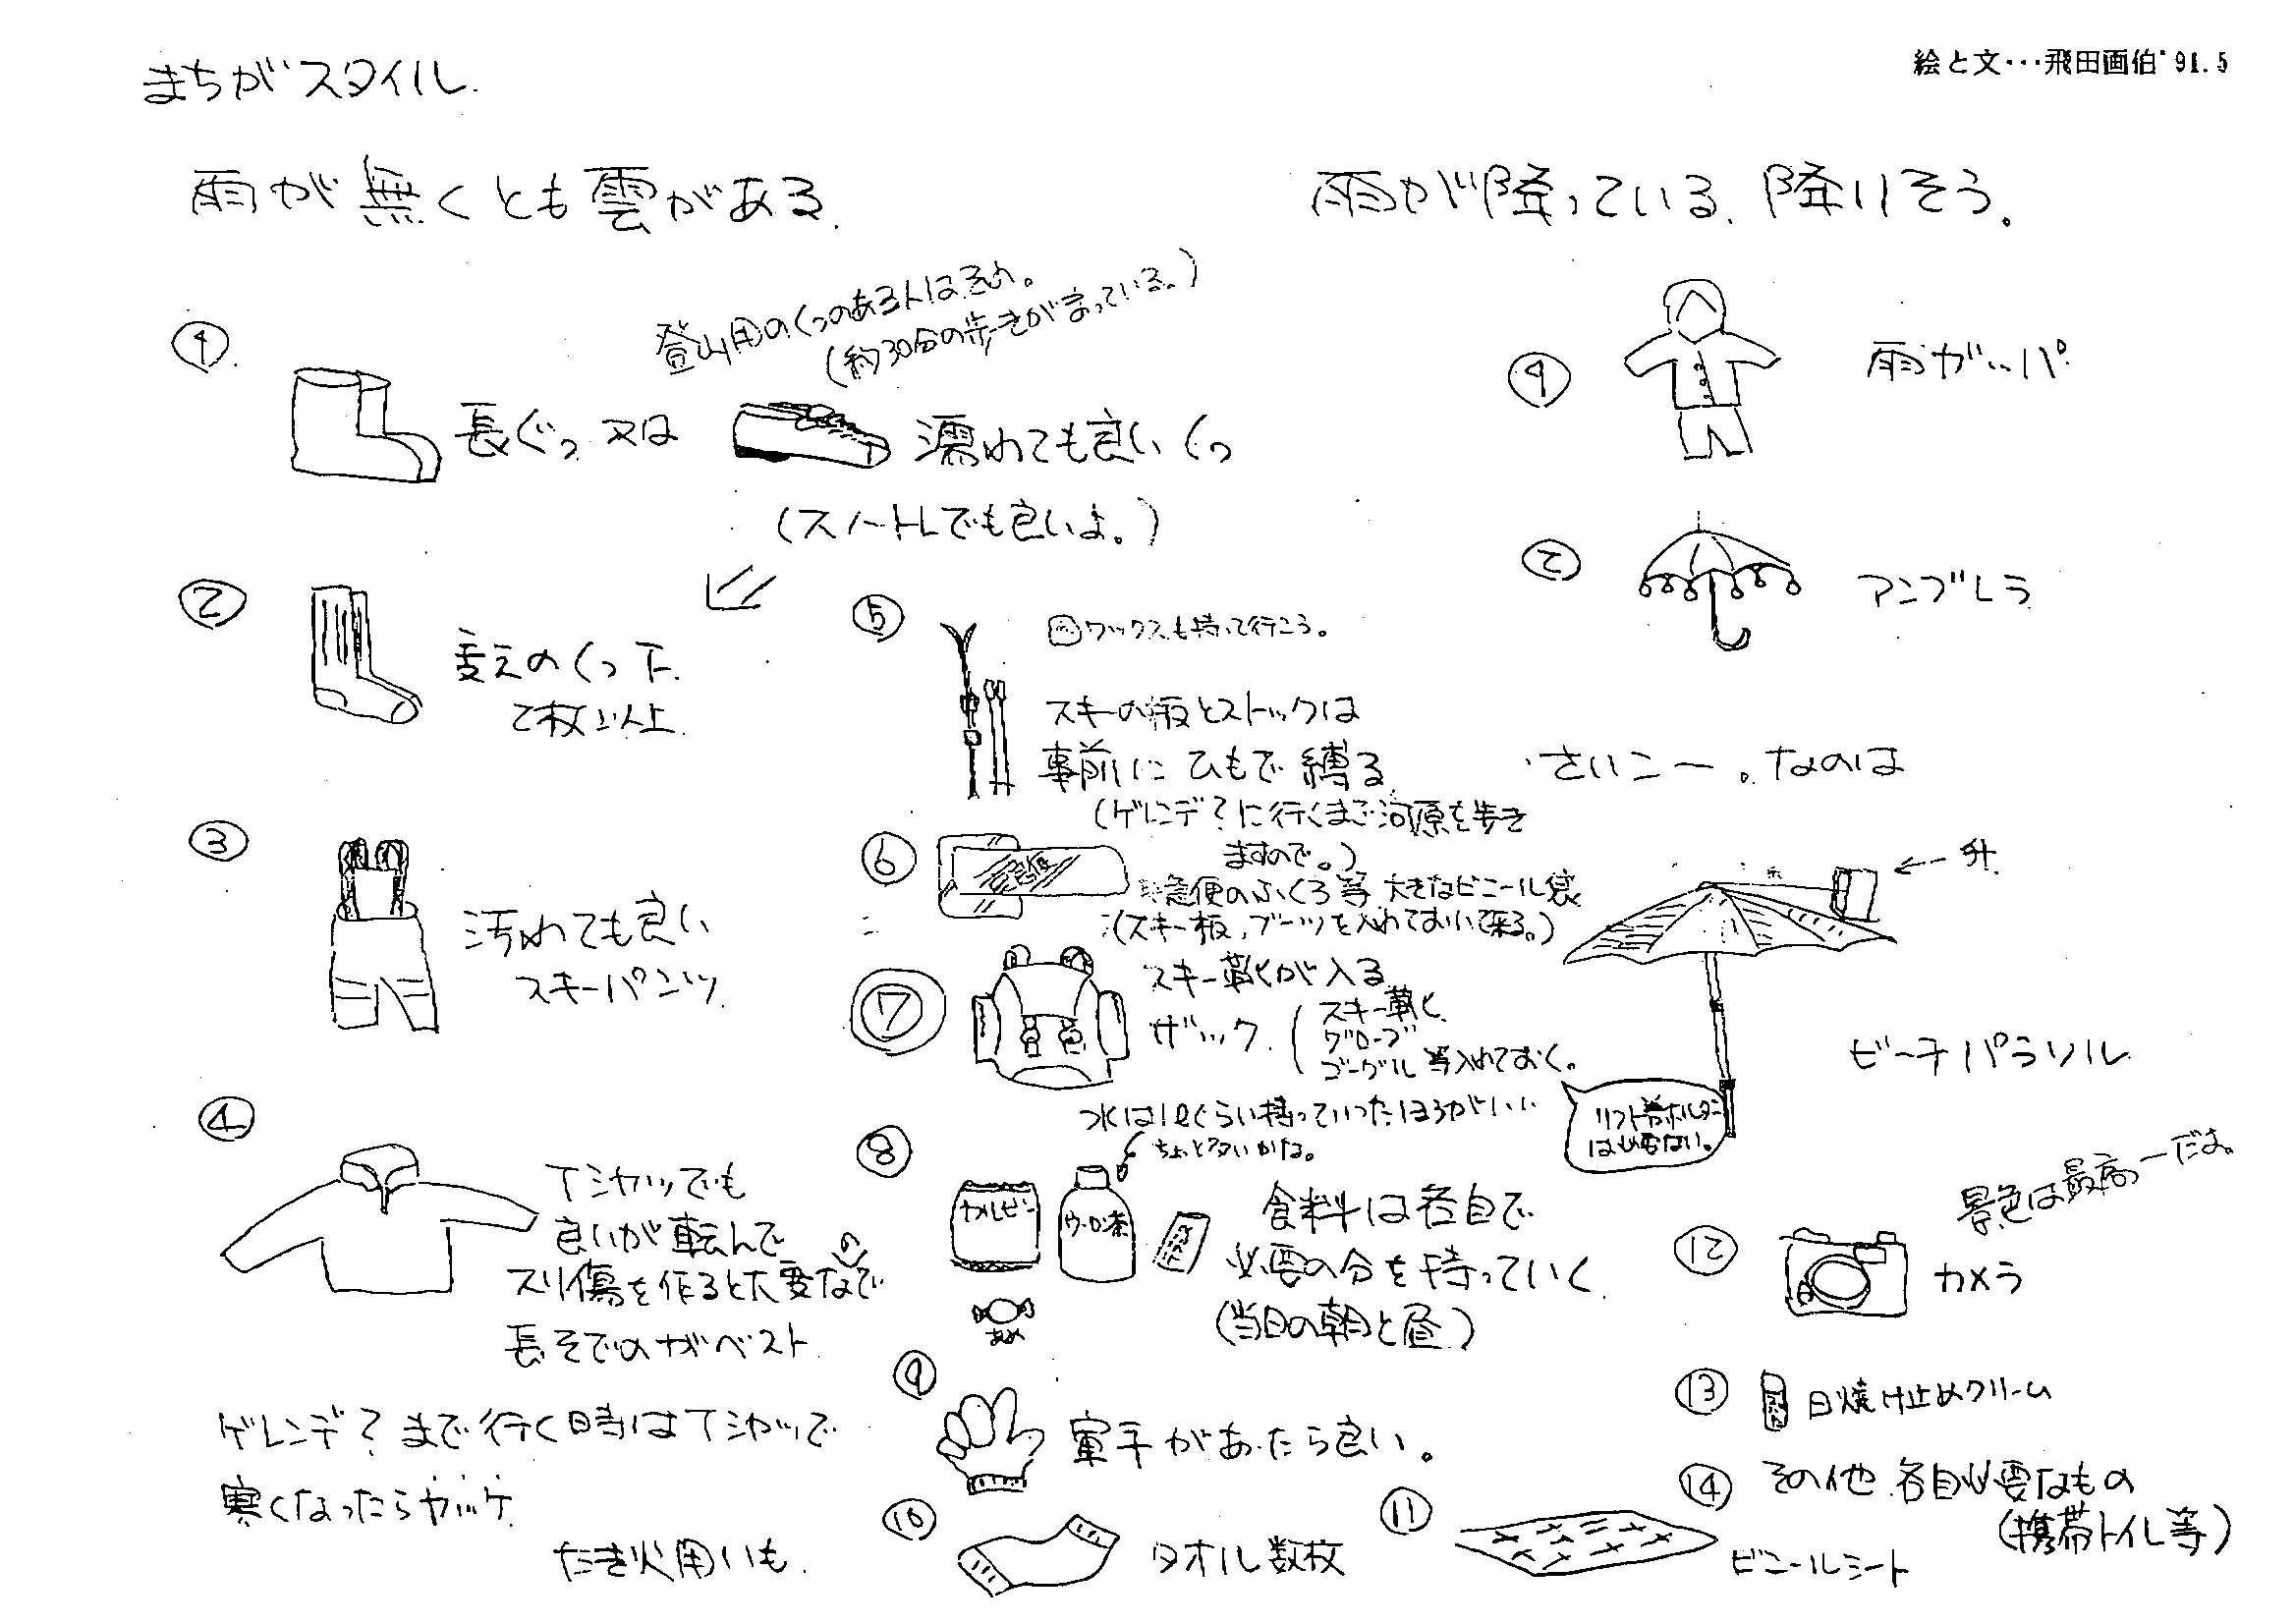 まちがスタイル.
絵と文･･･飛田画伯'91.5
雨が無くとも雲がある.
雨が降っている.降りそう。
①
登山用のくつのある人はそれ。
(約30分の歩きがまっている。)
長ぐつ又は
濡れても良いくつ
(スノートレでも良いよ。)
②
変えのくつ下.
2枚以上.
③
汚れても良い
スキーパンツ.
④
Tシャツでも
良いが転んで
スリ傷を作ると大変なので
長そでのがベスト.
ゲレンデ?まで行く時はTシャツで
寒くなったらヤッケ.
たき火用いも.
⑤
ワックスも持って行こう。
スキーの板とストックは
事前にひもで縛る.
(ゲレンデ?に行くまで河原を歩き
ますので。)
⑥
急便のふくろ等 大きなビニール袋
(スキー板,ブーツを入れておいて来る。)
⑦
スキー靴が入る
ザック.
スキー靴
グローブ
ゴーグル 等入れておく。
水は1ℓぐらい持っていったほうがいい
ちょっと多いかな。
⑧
カルビー
ウーロン茶
あめ
食料は各自で
必要の分を持っていく
(当日の朝と昼)
⑨
軍手があたら良い。
⑩
タオル数枚
⑪
ビニールシート
①
雨ガッパ.
②
アンブレラ
さいこー。なのは
糸
升.
ビーチパラソル
リフト券ホルダー
は必要ない。
景色は最高ーだよ。
⑫
カメラ
⑬
日焼け止めクリーム
⑭
その他 各自必要なもの
(携帯トイレ等)